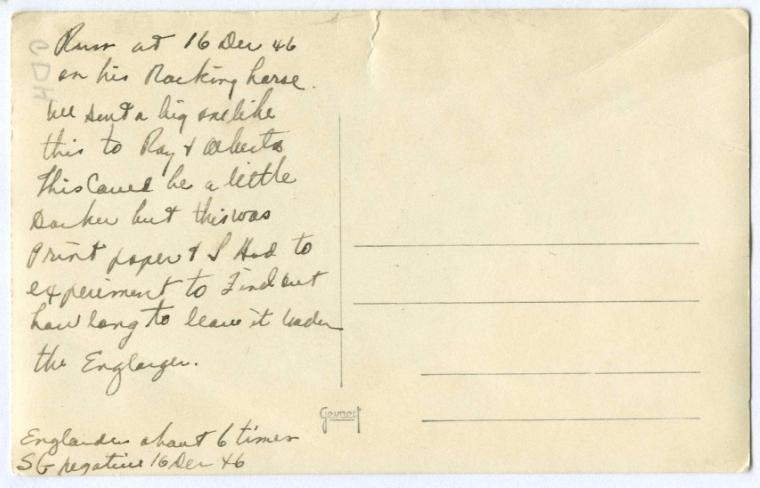 Russ at 16 Dec 46
on his Rocking horse.
We sent a big one like
this to Ray & Alberta
This Could be a little
Darker but this was
Print paper & I Had to
experiment to Find out
how long to leave it under
the Englarger.
Englarden about 6 times
SG negative 16 Dec 46
Gevaert
HOD